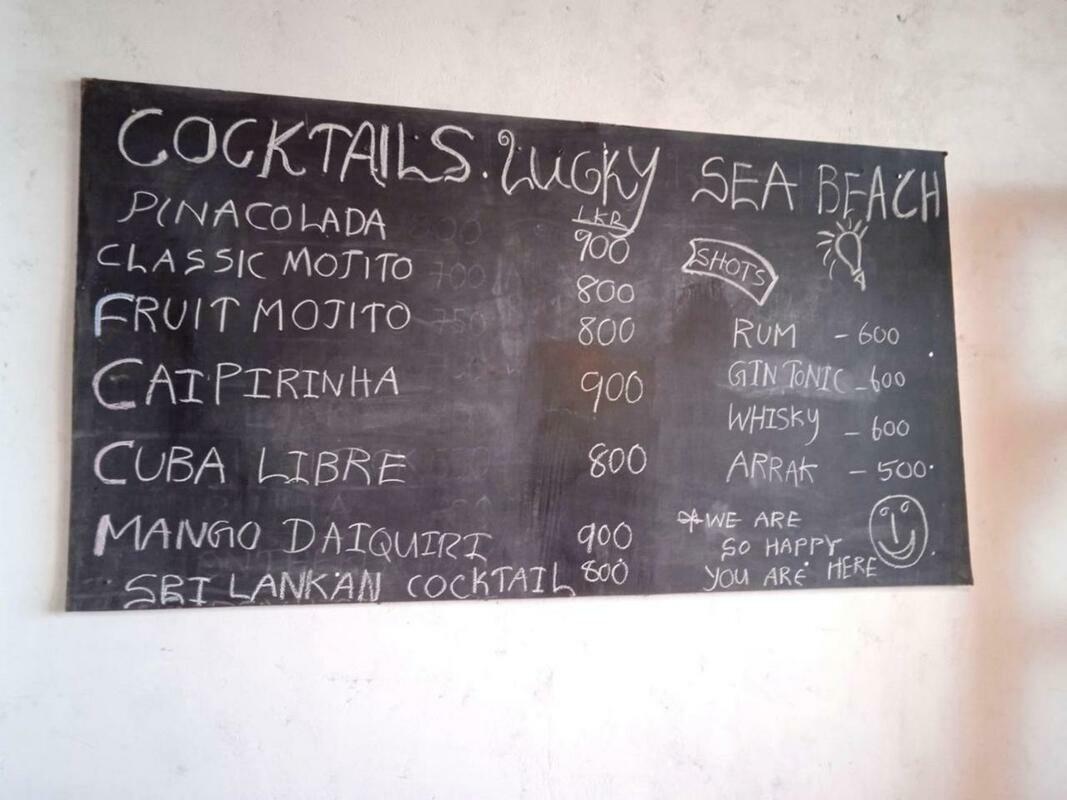 COCKTAILS. LUCKY SEA BEACH
LKR
PINACOLADA 900
CLASSIC MOJITO 800
FRUIT MOJITO 800
CAIPIRINHA 900
CUBA LIBRE 800
MANGO DAIQUIRI 900
SRI LANKAN COCKTAIL 800
SHOTS
RUM - 600
GIN TONIC - 600
WHISKY - 600
ARRAK - 500
* WE ARE
SO HAPPY
YOU ARE HERE